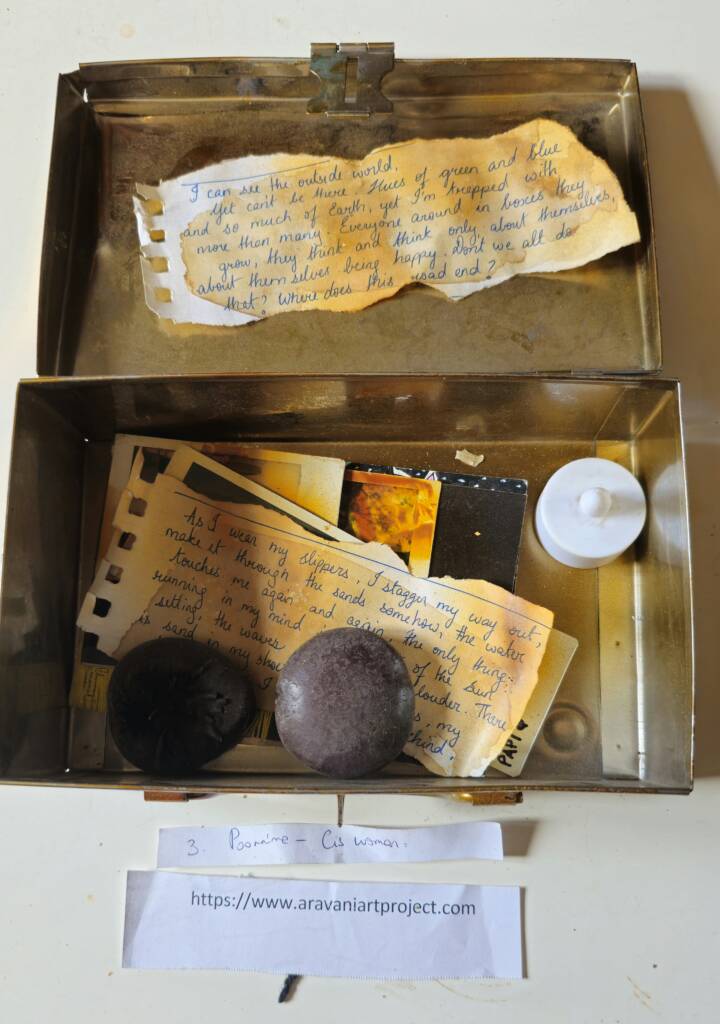 I can see the outside world,
Yet can't be there. Hues of green and blue
and so much of Earth, yet I'm trapped with
more than many. Everyone around in boxes they
grow, they think and think only about themselves,
about themselves being happy. Don't we all do
that? Where does this road end?
As I wear my slippers, I stagger my way out,
make it through the sands somehow, the water
touches me again and again, the only thing
running in my mind
setting, the waves of the Sun
sand in my louder. There
I s, my
PAPI
3. - Cis woman.
https://www.aravaniartproject.com